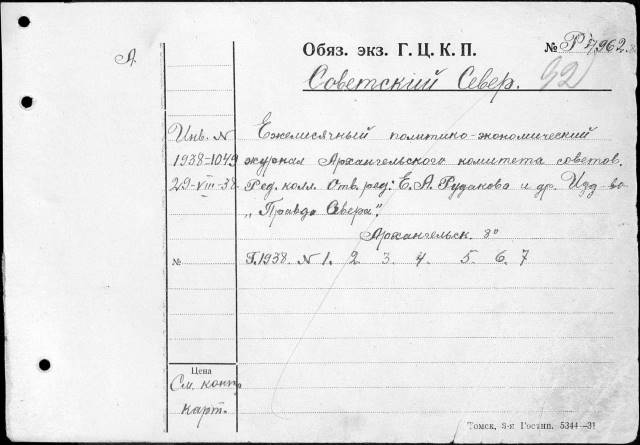 А.
Обяз. экз. Г. Ц. К. П.
№ Р
Советскій Север.
92
Инв. N
1938-1049
29-VIII-38.
Ежемисячный политико-экономический
журнал Архангельского комитета советов.
Ред. колл. Отв. ред: Е. А. Рудакова и др. Изд-во
„Правда Севера".
Архангельск. 8°
№
Г. 1938. N 1. 2 3. 4. 5. 6. 7
Цена
См. конт.
карт.
Томск, 3-я Гостип. 5344—31